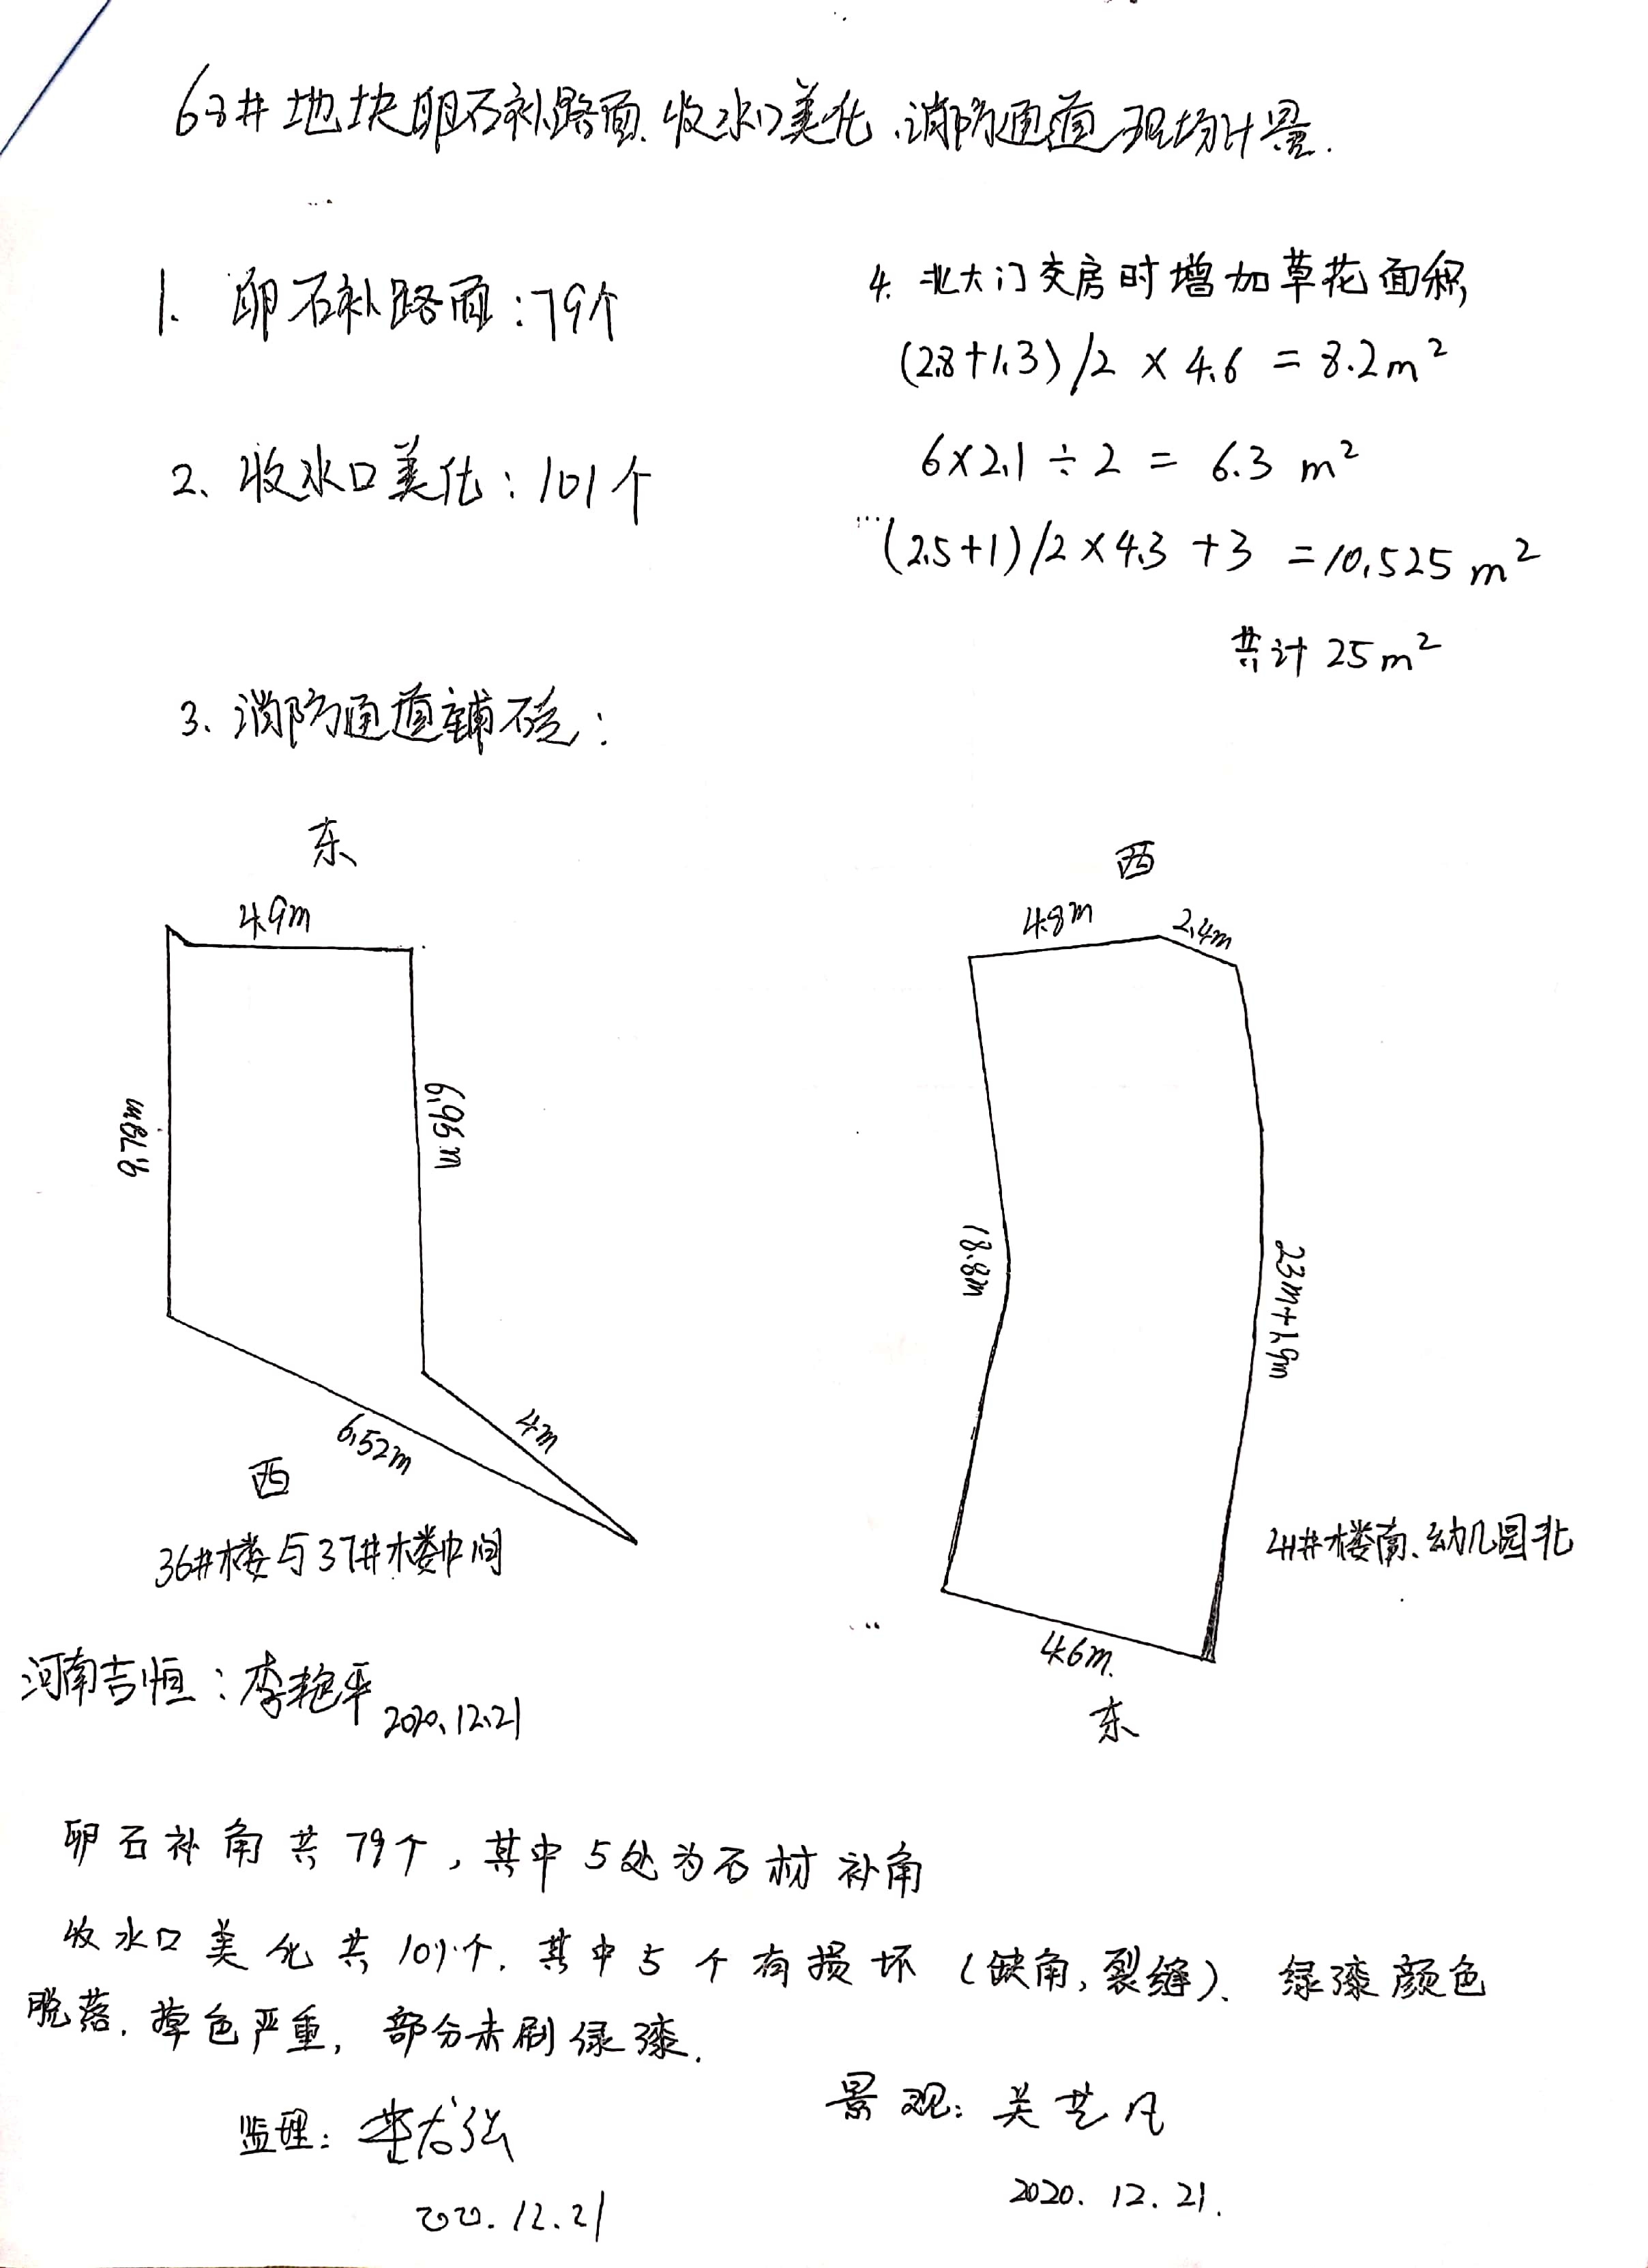 68#地块卵石补路面、收水口美化、消防通道现场计量.
1. 卵石补路面:79个
2、收水口美化:101个
3、消防通道铺砼:
4. 北大门交房时增加草花面积
(2.8+1.3)/2 × 4.6 = 8.2m²
6×2.1 ÷ 2 = 6.3 m²
(2.5+1)/2×4.3 +3 =10.525 m²
共计 25m²
东
4.9m
9.78m
6.95m
4m
6.52m
西
36#楼与37#楼中间
西
4.8m
2.4m
18.8m
23m+1.9m
4.6m.
东
41#楼南、幼儿园北
河南吉恒:李艳平
2020.12.21
卵石补角共79个,其中5处为石材补角
收水口美化共101个.其中5个有损坏(缺角,裂缝)、绿漆颜色
脱落.掉色严重,部分未刷绿漆.
监理:
2020.12.21
景观:吴艺凡
2020.12.21.